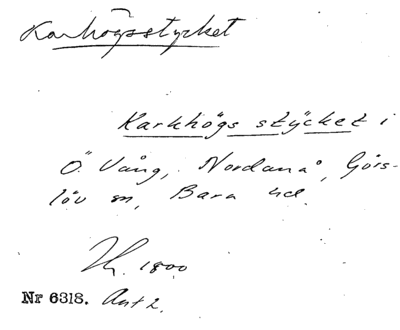 Karhögsstycket
Karkhögs stÿcket i
Ö. Vång, Nordanå, Görs-
löv sn, Bara hd.
1800.
Nr 6318. Ant 2.